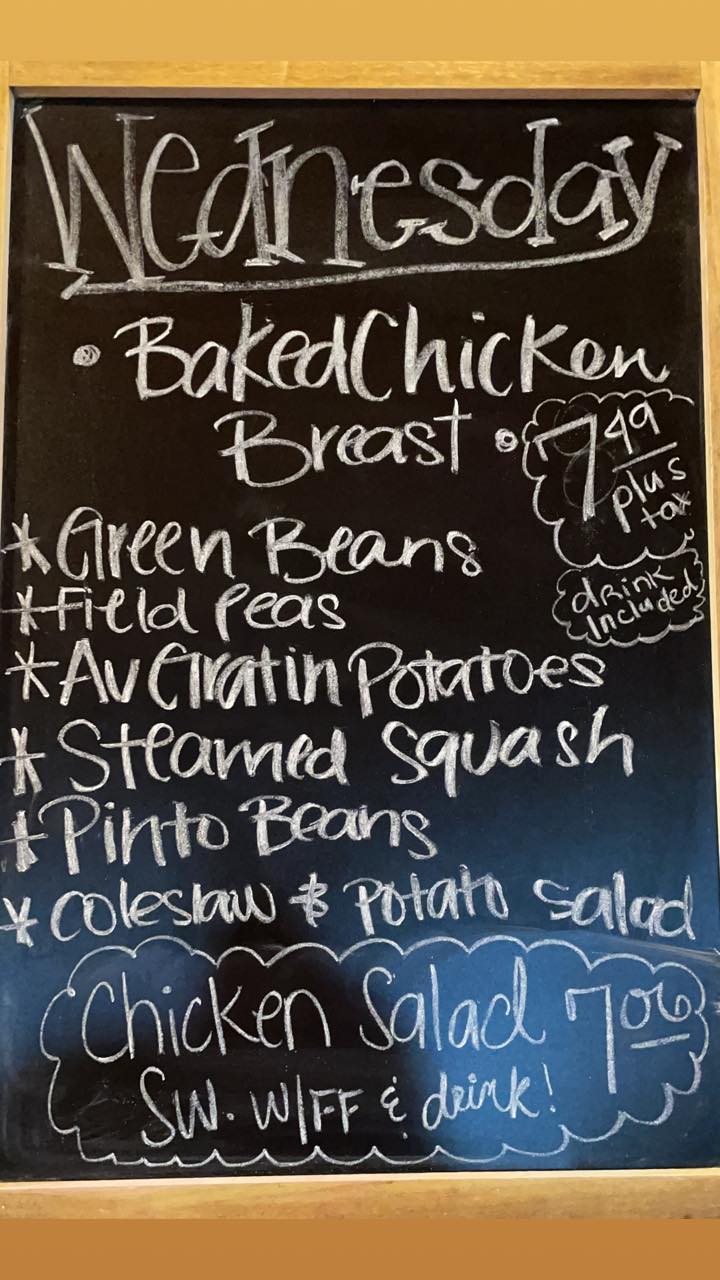 Wednesday
• Baked Chicken
Breast •
7.49
plus
tax
drink
Included
* Green Beans
* Field Peas
* Au Gratin Potatoes
* Steamed Squash
* Pinto Beans
* Coleslaw & Potato Salad
Chicken Salad 7.06
SW. W/FF & drink!